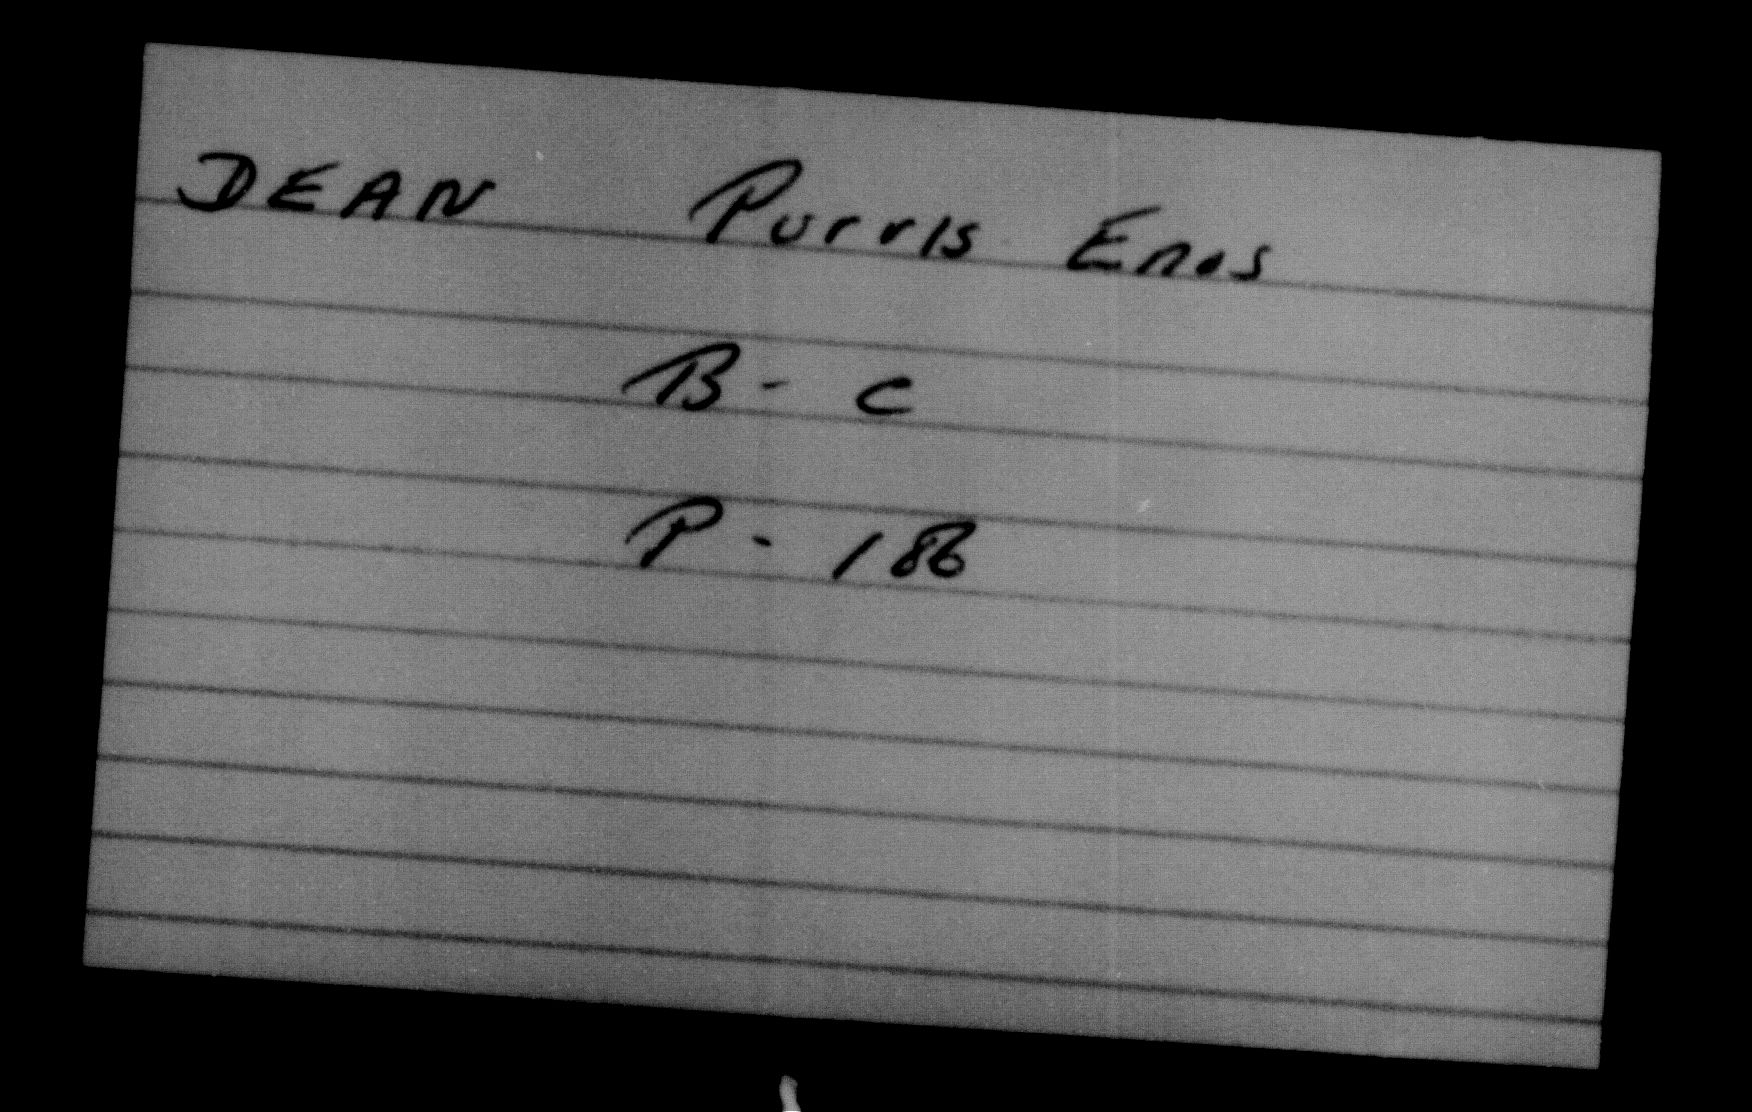 DEAN Purvis Enos
B - C
P - 186